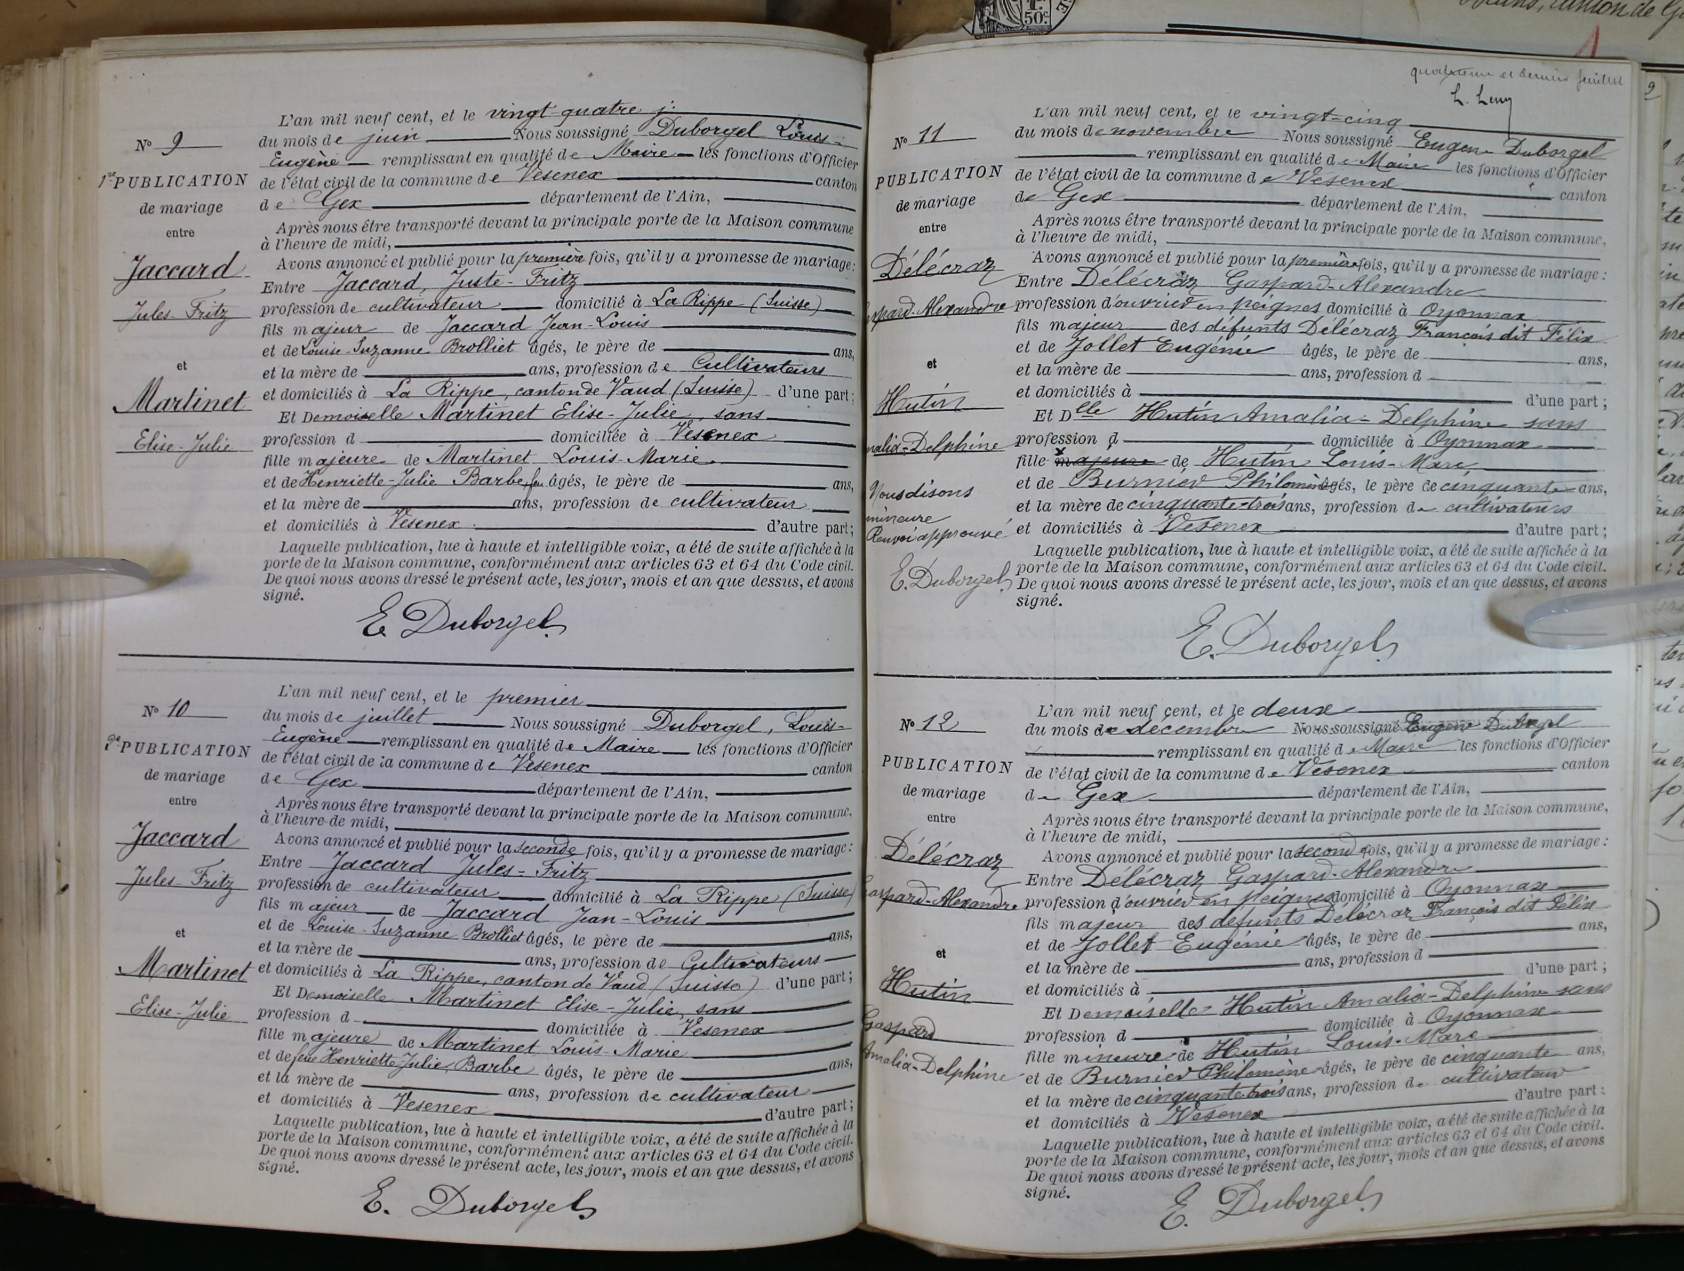 50c
canton de
quatrième et dernier feuillet
2
Nº 9
1re PUBLICATION
de mariage
entre
Jaccard
Jules Fritz
et
Martinet
Elise-Julie
L'an mil neuf cent, et le vingt-quatre j.
du mois de juin Nous soussigné Duborgel Louis-
Eugène remplissant en qualité de Maire les fonctions d'Officier
de l'état civil de la commune de Vesenex canton
de Gex département de l'Ain,
Après nous être transporté devant la principale porte de la Maison commune
à l'heure de midi,
Avons annoncé et publié pour la première fois, qu'il y a promesse de mariage:
Entre Jaccard, Juste-Fritz
profession de cultivateur domicilié à La Rippe (Suisse)
fils majeur de Jaccard Jean-Louis
et de Louise-Suzanne Brolliet âgés, le père de ans,
et la mère de ans, profession de Cultivateurs
et domiciliés à La Rippe, canton de Vaud (Suisse) d'une part;
Et Demoiselle Martinet Elise-Julie, sans
profession d domiciliée à Vesenex
fille majeure de Martinet Louis-Marie
et de Henriette-Julie Barbe, feu âgés, le père de ans,
et la mère de ans, profession de cultivateur
et domiciliés à Vesenex d'autre part;
Laquelle publication, lue à haute et intelligible voix, a été de suite affichée à la
porte de la Maison commune, conformément aux articles 63 et 64 du Code civil.
De quoi nous avons dressé le présent acte, les jour, mois et an que dessus, et avons
signé.
E. Duborgel
Nº 10
2e PUBLICATION
de mariage
entre
Jaccard
Jules-Fritz
et
Martinet
Elise-Julie
L'an mil neuf cent, et le premier
du mois de juillet Nous soussigné Duborgel, Louis-
Eugène remplissant en qualité de Maire les fonctions d'Officier
de l'état civil de la commune de Vesenex canton
de Gex département de l'Ain,
Après nous être transporté devant la principale porte de la Maison commune.
à l'heure de midi,
Avons annoncé et publié pour la seconde fois, qu'il y a promesse de mariage:
Entre Jaccard Jules-Fritz
profession de cultivateur domicilié à La Rippe (Suisse)
fils majeur de Jaccard Jean-Louis
et de Louise-Suzanne Brolliet âgés, le père de ans,
et la mère de ans, profession de Cultivateurs
et domiciliés à La Rippe, canton de Vaud (Suisse) d'une part;
Et Demoiselle Martinet Elise-Julie, sans
profession d domiciliée à Vesenex
fille majeure de Martinet Louis-Marie
et de feu Henriette Julie Barbe âgés, le père de ans,
et la mère de ans, profession de cultivateur
et domiciliés à Vesenex d'autre part;
Laquelle publication, lue à haute et intelligible voix, a été de suite affichée à la
porte de la Maison commune, conformément aux articles 63 et 64 du Code civil.
De quoi nous avons dressé le présent acte, les jour, mois et an que dessus, et avons
signé.
E. Duborgel
Nº 11
PUBLICATION
de mariage
entre
Délécraz
Gaspard-Alexandre
et
Hutin
Amalia-Delphine
Nous disons
mineure
Renvoi approuvé
E. Duborgel
L'an mil neuf cent, et le vingt-cinq
du mois de novembre Nous soussigné Eugène Duborgel
remplissant en qualité de Maire les fonctions d'Officier
de l'état civil de la commune de Vesenex canton
de Gex département de l'Ain,
Après nous être transporté devant la principale porte de la Maison commune,
à l'heure de midi,
Avons annoncé et publié pour la première fois, qu'il y a promesse de mariage:
Entre Délécraz Gaspard-Alexandre
profession d'ouvrier en peignes domicilié à Oyonnax
fils majeur des défunts Délécraz François dit Félix
et de Jollet Eugénie âgés, le père de ans,
et la mère de ans, profession d
et domiciliés à d'une part;
Et Dlle Hutin Amalia-Delphine sans
profession d domiciliée à Oyonnax
fille majeure de Hutin Louis-Marc
et de Burnier Philomène âgés, le père de cinquante ans,
et la mère de cinquante-trois ans, profession de cultivateurs
et domiciliés à Vesenex d'autre part;
Laquelle publication, lue à haute et intelligible voix, a été de suite affichée à la
porte de la Maison commune, conformément aux articles 63 et 64 du Code civil.
De quoi nous avons dressé le présent acte, les jour, mois et an que dessus, et avons
signé.
E. Duborgel
Nº 12
PUBLICATION
de mariage
entre
Délécraz
Gaspard-Alexandre
et
Hutin
Gaspard
Amalia-Delphine
L'an mil neuf cent, et le deux
du mois de décembre Nous soussigné Eugène Duborgel
remplissant en qualité de Maire les fonctions d'Officier
de l'état civil de la commune de Vesenex canton
de Gex département de l'Ain,
Après nous être transporté devant la principale porte de la Maison commune,
à l'heure de midi,
Avons annoncé et publié pour la seconde fois, qu'il y a promesse de mariage:
Entre Délécraz Gaspard-Alexandre
profession d'ouvrier en peignes domicilié à Oyonnax
fils majeur des défunts Délécraz François dit Félix
et de Jollet Eugénie âgés, le père de ans,
et la mère de ans, profession d
et domiciliés à d'une part;
Et Demoiselle Hutin Amalia-Delphine sans
profession d domiciliée à Oyonnax
fille mineure de Hutin Louis-Marc
et de Burnier Philomène âgés, le père de cinquante ans,
et la mère de cinquante trois ans, profession de cultivateur
et domiciliés à Vesenex d'autre part;
Laquelle publication, lue à haute et intelligible voix, a été de suite affichée à la
porte de la Maison commune, conformément aux articles 63 et 64 du Code civil.
De quoi nous avons dressé le présent acte, les jour, mois et an que dessus, et avons
signé.
E. Duborgel